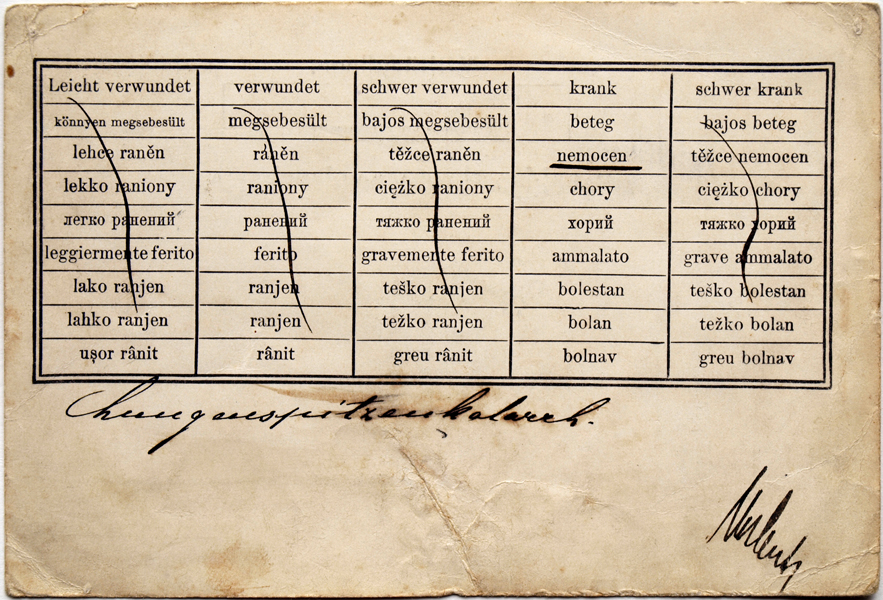 Leicht verwundet verwundet schwer verwundet krank schwer krank
könnyen megsebesült megsebesült bajos megsebesült beteg bajos beteg
lehce raněn raněn těžce raněn nemocen těžce nemocen
lekko raniony raniony ciężko raniony chory ciężko chory
легко ранений ранений тяжко ранений хорий тяжко хорий
leggiermente ferito ferito gravemente ferito ammalato grave ammalato
lako ranjen ranjen teško ranjen bolestan teško bolestan
lahko ranjen ranjen težko ranjen bolan težko bolan
ușor rânit rânit greu rânit bolnav greu bolnav
Lungenspitzenkatarrh.